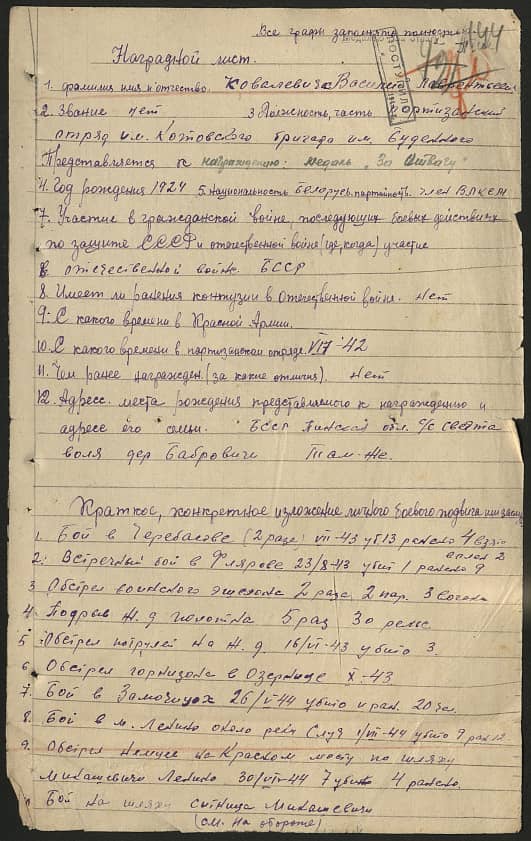 Все графы заполнять полностью.
144
Наградной лист.
ПОСТУПИЛО
1. Фамилия имя и отчество. Ковалевич Василий Лаврентьевич
2. Звание нет 3 Должность, часть. Партизанский
отряд им. Котовского бригада им. Буденного
Представляется к награждению: медаль "За Отвагу"
4. Год рождения 1924 5. Национальность Белорусь. партийность член ВЛКСМ
7. Участие в гражданской войне, последующих боевых действиях
по защите СССР и отечественной войне (где, когда) участие
в отечественной войне. БССР
8. Имеет ли ранения контузии в отечественной войне. нет
9. С какого времени в Красной Армии.
10. С какого времени в партизанском отряде. VII-42
11. Чем ранее награжден (за какие отличия). нет
12. Адресс. места рождения представляемого к награждению и
адресс его семьи. БССР Пинской обл. с/с Святая
воля дер Бабровичи Там-же.
Краткое, конкретное изложение личного боевого подвига или заслуг
1. Бой в (2 раза) VII-43 уб 13 ранено 4 взято
в плен 2
2. Встречный бой в 23/X-43 убит 1 ранено 9
3 Обстрел воинского эшелона 2 раза 2 пар. 3 вагона
4 Подрыв ж. д. полотна 5 раз 30 рельс
5 Обстрел патрулей на ж. д. 16/VI-43 убито 3.
6 Обстрел горнизона в Озернице X-43
7. Бой в 26/V-44 убито и ран. 20 чел.
8. Бой в м. Ленино около реки Случ 1/VII-44 убито 9 ран 12
9. Обстрел немцев на Красном мосту по шляху
Микашевичи Ленино 30/VI-44 7 убито 4 ранено.
Бой на шляху Ситница Микашевичи
(см. на обороте)